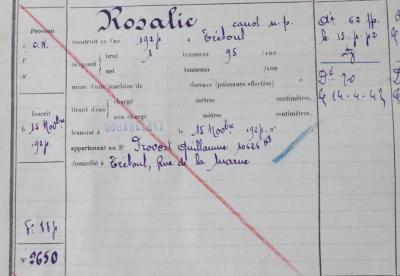 Rosalie canot n.p.
Provenant
O.N.
construit en l'an 192 à Tréboul
jaugeant brut 1 tonneaux 95 /100
net tonneaux /100
muni d'une machine de chevaux (puissance effective)
tirant d'eau chargé mètres centimètres.
non chargé mètres centimètres.
Inscrit
le 15 Nobre
192
francisé à DOUARNENEZ le 15 Nobre 192 n°
appartenant au Sr Provost Guillaume 10626
domicilié à Tréboul, Rue de la Marne
N° 2650
Dt 20
le 14-4-42